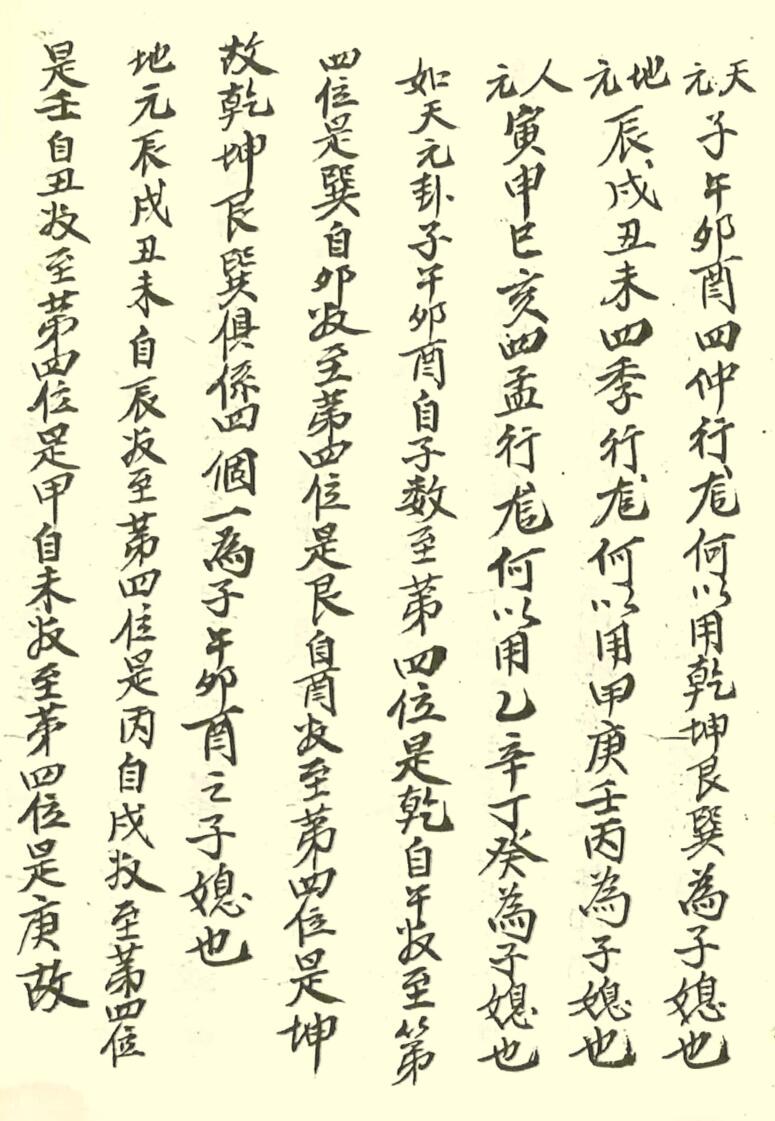 天元 子午卯酉四仲行尨何以用乾坤艮巽為子媳也
地元 辰戌丑未四季行尨何以用甲庚壬丙為子媳也
人元 寅申巳亥四孟行尨何以用乙辛丁癸為子媳也
如天元卦子午卯酉自子数至第四位是乾自午数至第
四位是巽自卯数至第四位是艮自酉数至第四位是坤
故乾坤艮巽俱係四個一為子午卯酉之子媳也
地元辰戌丑未自辰数至第四位是丙自戌数至第四位
是壬自丑数至第四位是甲自未数至第四位是庚故